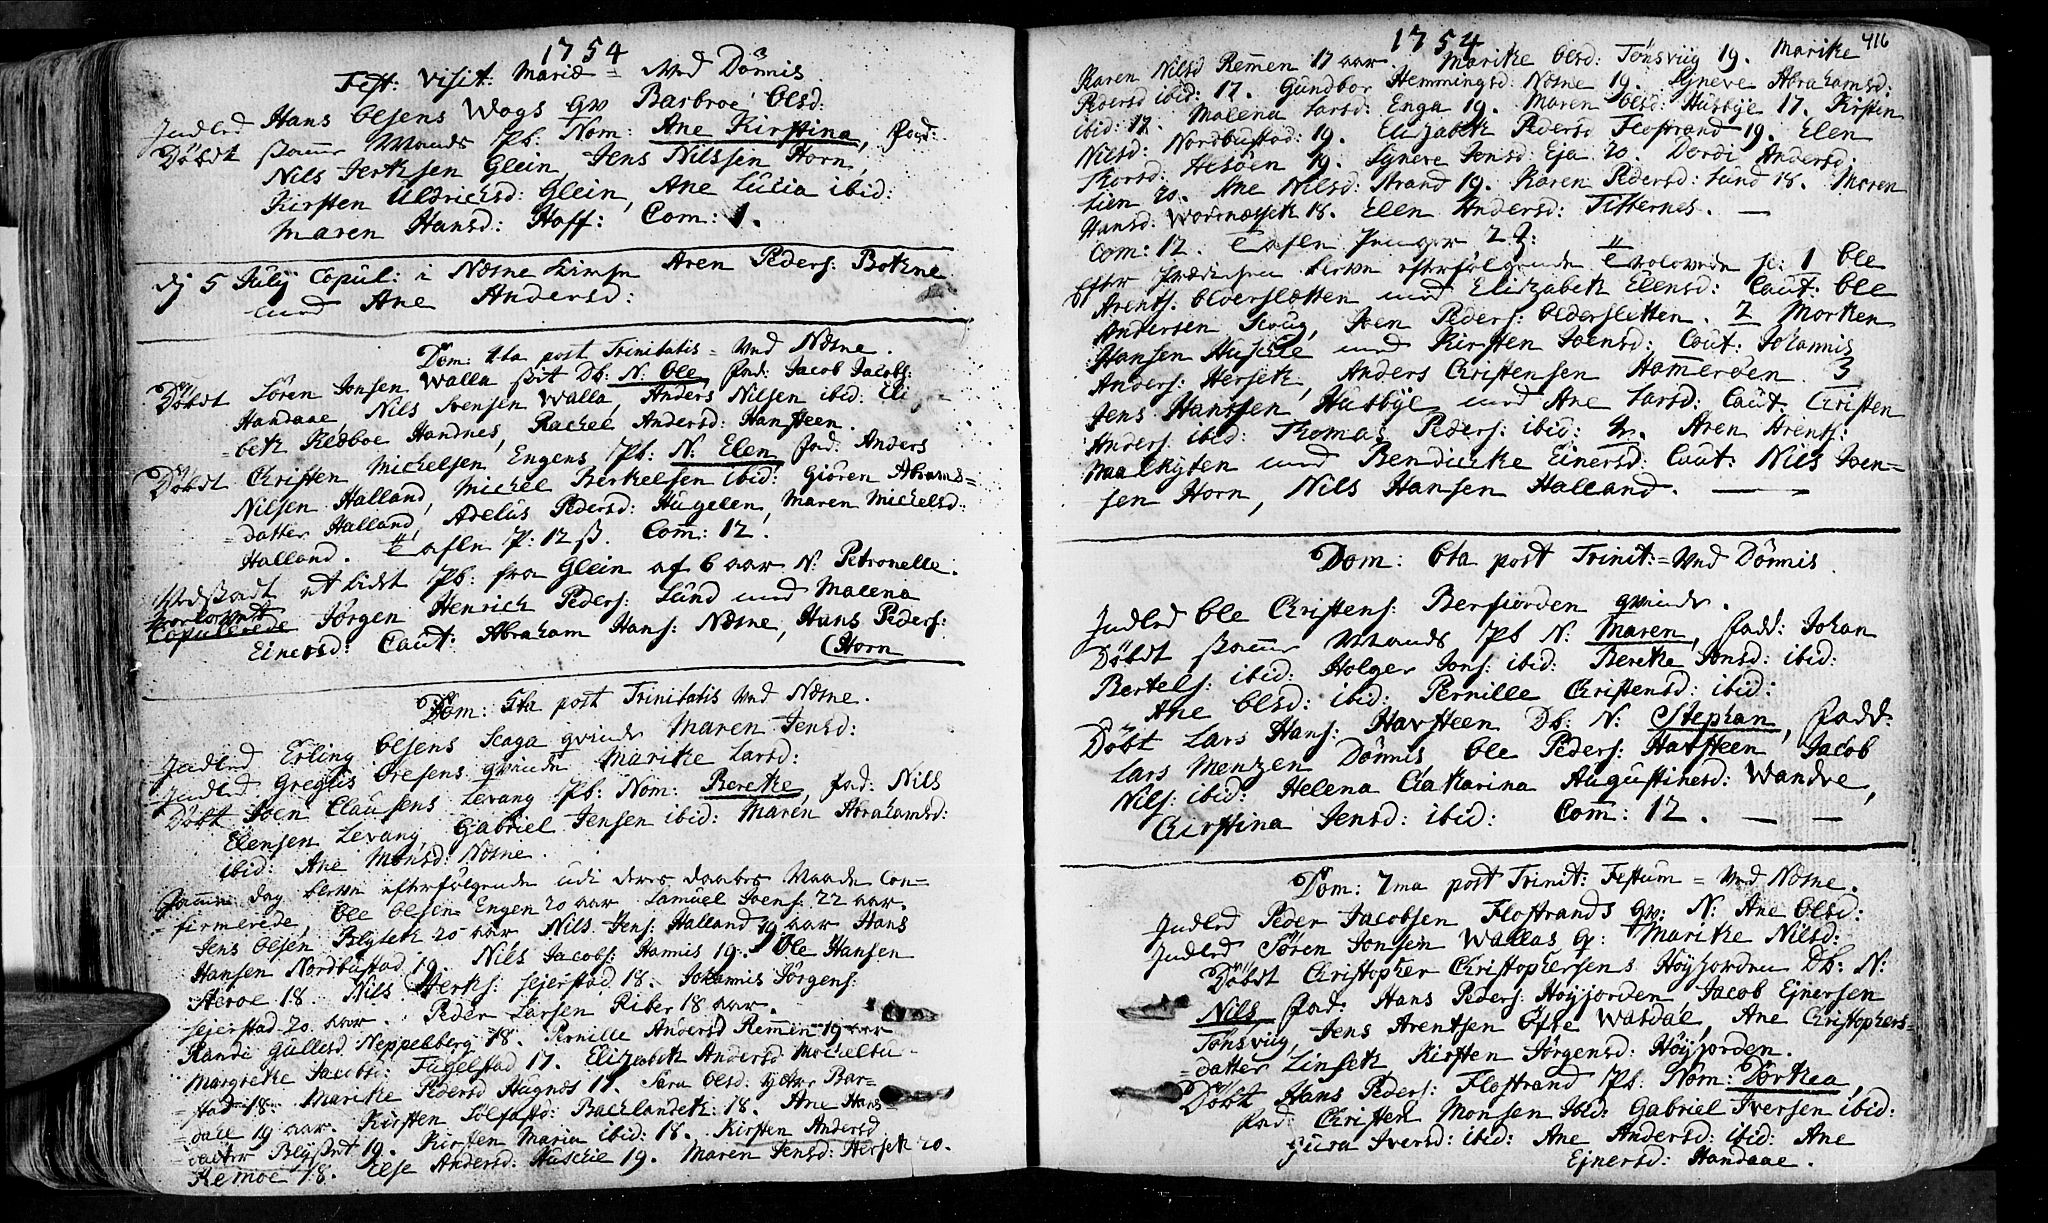 1754
Fest: Visit: Mariæ = Ved Dönnis
Jndled Hans Olsens Wogs qv Barbroe Olsd:
Döbdt samme Mands Pb. Nom: Ane Kirstina, fad:
Nils Jerksen Glein, Jens Nilssen Horn,
Kirsten Uldrichsd: Glein, Ane Lucia ibid:
Maren Hansd: Hoff: Com: 1.
dj 5 Julij Copul: i Næsne Aren Peders: Botkne
med Ane Andersd:
Dom: 4ta post Trinitatis = Ved Næsne.
Döbdt Sören Jonsen Walla Db: N. Ole, fad: Jacob Jacobs:
Handaae, Nils Svensen Walla, Anders Nilsen ibid: Eli
beth Klæboe Handnes, Rachel Andersd: Hansteen.
Döbdt Christen Michelsen Engens Pb: N: Elen fad: Anders
Nilsen Halland, Michel Berthelsen ibid: Giören Abrams=
=datter Halland, Adelus Pedersd: Hugelen, Maren Michelsd:
Halland. Taflen P: 12 ß. Com: 12.
et lidet Pb: fra Glein af 6 aar N: Petronelle.
Trolovet
Copulerede Jörgen Henrich Peders: Lund med Malena
Einersd: Caut: Abraham Hans: Næsne, Hans Peders:
(Horn
Dom: 5ta post Trinitatis Ved Næsne.
Jndled Erling Olsens Scaga qvinde Maren Jensd:
Jndled Gregus Oresens qvinde Marike Larsd:
Döbt Joen Clausens Levang Pb: Nom: Berethe, fad: Nils
Elensen Levang, Gabriel Jensen ibid: Maren Abrahamsd:
ibid: Ane Monsd: Næsne.
Samme Dag bleve efterfölgende udi deres daabes Naade Con=
=firmerede, Ole Olsen Engen 20 aar Samuel Joens: 22 aar.
Jens Olsen Blyseth 20 aar Nils Jens: Halland 19 aar Hans
Hansen Nordbustad 19. Nils Jacobs: Hamnis 19. Ole Hansen
Heroe 18. Nils Jerks: Sejerstad 18. Johannis Jörgens:
Sejerstad 20 aar. Peder Larsen Riber 18 aar.
Randi Gullesd Neppelberg 18. Pernille Andersd Remen 19 aar
Margrethe Jacobs: Fugelstad 17. Elizabeth Andersd Mockelbu=
=stad 18. Marike Pedersd Hugnæs 17. Sara Olsd: Bar=
=dale 19 aar. Kirsten Bachlandeth: 18. Ane Hans=
=datter Blyseth 19. Kirsten Maria ibid: 18. Kirsten Andersd
Remoe 18. Else Andersd: Huschie 19. Maren Jensd: Herseth 20.
1754
416
Karen Nilsd Remen 17 aar. Marike Olsd: Tönsviig 19. Marike
Roersd ibid: 17. Gundbor Hemmingsd: Næsne 19. Syneve Abrahamsd:
ibid: 17. Malena Larsd: Enga 19. Maren Olsd: Husbye 17. Kirsten
Nilsd: Nordbustad: 19. Elizabeth Pedersd Flostrand 19. Elen
Thorsd: Hesöen 19. Syneve Jonsd: Eja 20. Dordi Andersd:
Lien 20. Ane Nilsd: Strand 19. Karen Pedersd: Lund 18. Maren
Hansd: Wornæsseth 18. Elen Andersd: Titternes. —
Com: 12. Taflen Penger
Efter Prædikenen bleve efterfölgende Trolovede 1 Ole
Arents: Olderslætten med Elizabeth Elensd: Caut: Ole
Andersen Scoug, Joen Peders: Oldersletten. 2 Morten
Hansen Huschie med Kirsten Joensd: Caut: Johannis
Anders: Herseth, Anders Christensen Hamerden. 3
Jens Hanssen Husbye med Ane Larsd: Caut Christen
Anders: ibid: Thomas Peders: ibid: 4. Aren Arents:
med Bendickte Einersd: Caut: Nils Joen=
sen Horn, Nils Hansen Halland. —
Dom: 6ta post Trinit:= Ved Dönnis
Jndled Ole Christens: Berfiorden qvinde.
Döbdt samme Mands Pb N: Maren, fadd: Johan
Bertels: ibid: Holger Jons: ibid: Berethe Jonsd: ibid:
Ane Olsd: ibid: Pernille Christensd: ibid:
Döbt Lars Hans: Havsteen Db: N: Stephan, fadd:
Lars Mentzen Dönnis Ole Peders: Havsteen Jacob
Nils: ibid: Helena Catharina Augustinesd: Wandve,
Christina Jensd: ibid: Com: 12. — —
Dom: 7ma post Trinit: Festum = Ved Næsne.
Jndled Peder Jacobsen Flostrands qv: N: Ane Olsd:
Jndled Sören Jonsen Wallas q: Marike Nilsd:
Döbdt Christopher Christophersens Höyjorden Db: N:
Nils fad: Hans Peders: Höyjorden, Jacob Ejnersen
Tönsviig, Jens Arentsen Öfre Wasdal, Ane Christophers=
=datter Linseth, Kirsten Jörgensd: Höyjorden.
Döbt Hans Peders: Flostrand Pb. Nom: Dorthea,
fad: Christen Monsen ibid: Gabriel Iversen ibid:
Jura Iversd: ibid: Ane Andersd: ibid: Ane
Ejnersd: Handaae.